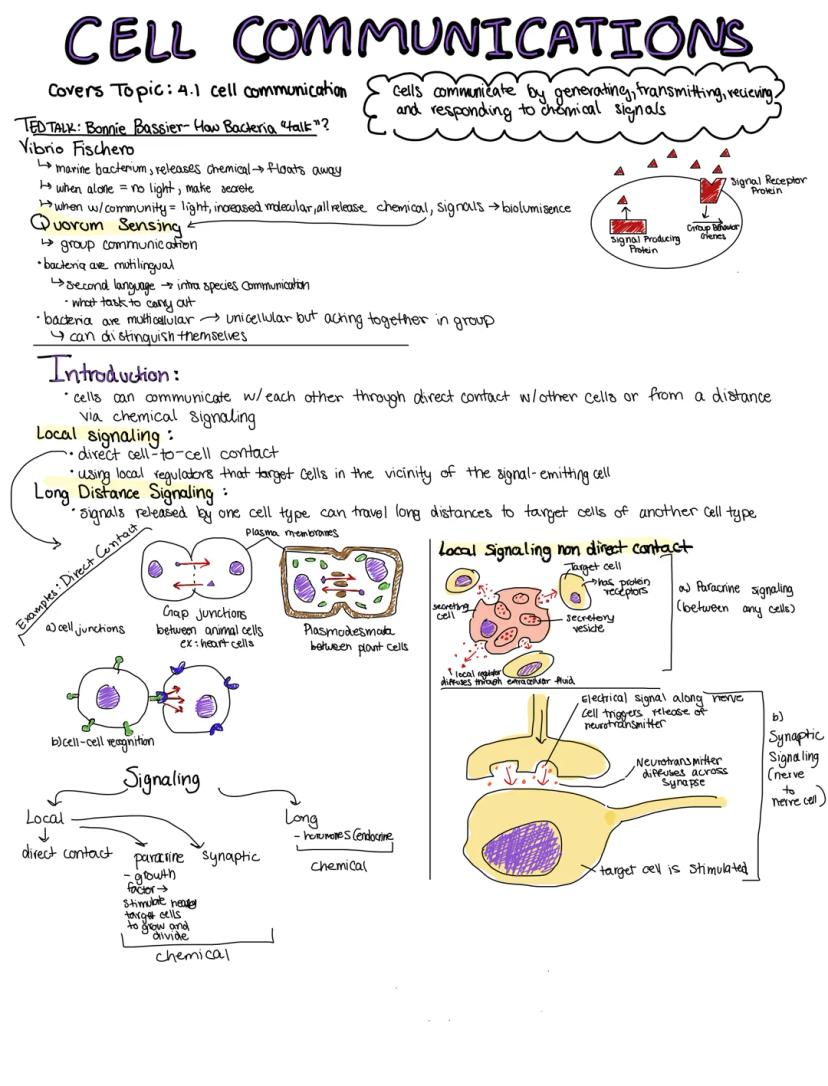 CELL COMMUNICATIONS
Covers Topic: 4.1 cell communication
cells communicate by generating, transmitting, recieving
and responding to chemical signals
TED TALK: Bonnie Bassier- How Bacteria "talk"?
Vibrio Fischero
↳ marine bacterium, releases chemical → floats away
↳ when alone = no light, make secrete
↳ when w/community = light, increased molecular, all release chemical, signals → biolumisence
Quorum Sensing
↳ group communication
• bacteria are mutilingual
↳ second language → intra species communication
• what task to carry out
• bacteria are multicellular → unicellular but acting together in group
↳ can distinguish themselves
Signal Receptor
Protein
Signal Producing
Protein
Group Behavior
Genes
Introduction:
• cells can communicate w/each other through direct contact w/other cells or from a distance
via chemical signaling
Local signaling :
• direct cell-to-cell contact
• using local regulators that target cells in the vicinity of the signal-emitting cell
Long Distance Signaling :
• signals released by one cell type can travel long distances to target cells of another cell type
Examples: Direct Contact
Plasma membranes
a) cell junctions
Gap junctions
between animal cells
ex: heart cells
Plasmodesmata
between plant cells
b) cell-cell recognition
Local Signaling non direct contact
Target cell
→ has protein
receptors
secreting
cell
secretory
vesicle
local regulator
diffuses through extracellular fluid
a) Paracrine signaling
(between any cells)
Electrical signal along nerve
cell triggers release of
neurotransmitter
Neurotransmitter
diffuses across
synapse
target cell is stimulated
b)
Synaptic
Signaling
(nerve
to
nerve cell)
Signaling
Local
Long
- hormones (endocrine
chemical
direct contact
paracrine
synaptic
- growth
factor →
stimulate nearby
target cells
to grow and
divide
chemical